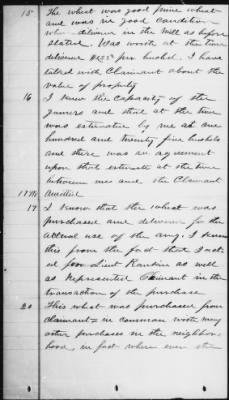 15 The wheat was good prime wheat
and was in good condition
when delivered in the Mill as before
stated. Was worth at the time
delivered per bushel. I have
talked with Claimant about the
value of property
16 I know the capacity of the
and that at the time
was estimated by me at one
hundred and twenty five bushels
and there was an agreement
upon that estimate at the time
between me and the Claimant
17 I know that the wheat was
purchased and delivered for the
actual use of the army. I know
this from the fact that I acted
for Lieut Rankin as well
as represented Claimant in the
transaction of the purchase
20 This wheat was purchased from
claimant in common with many
other purchases in the neighbor-
hood, in fact where ever